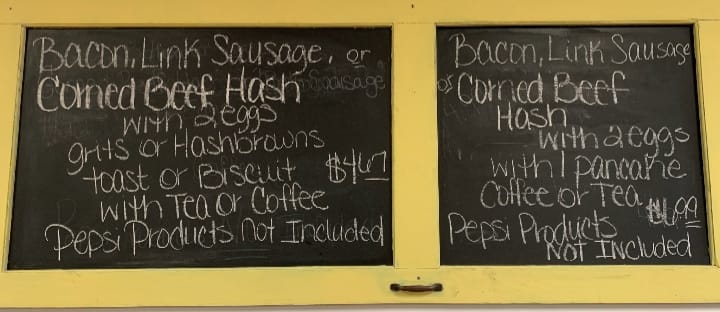 Bacon, Link Sausage, or
Corned Beef Hash
with 2 eggs
grits or Hashbrowns
toast or Biscuit $4.67
with Tea or Coffee
Pepsi Products Not Included
Bacon, Link Sausage
or Corned Beef
Hash
with 2 eggs
with 1 pancake
Coffee or Tea
Pepsi Products
Not Included